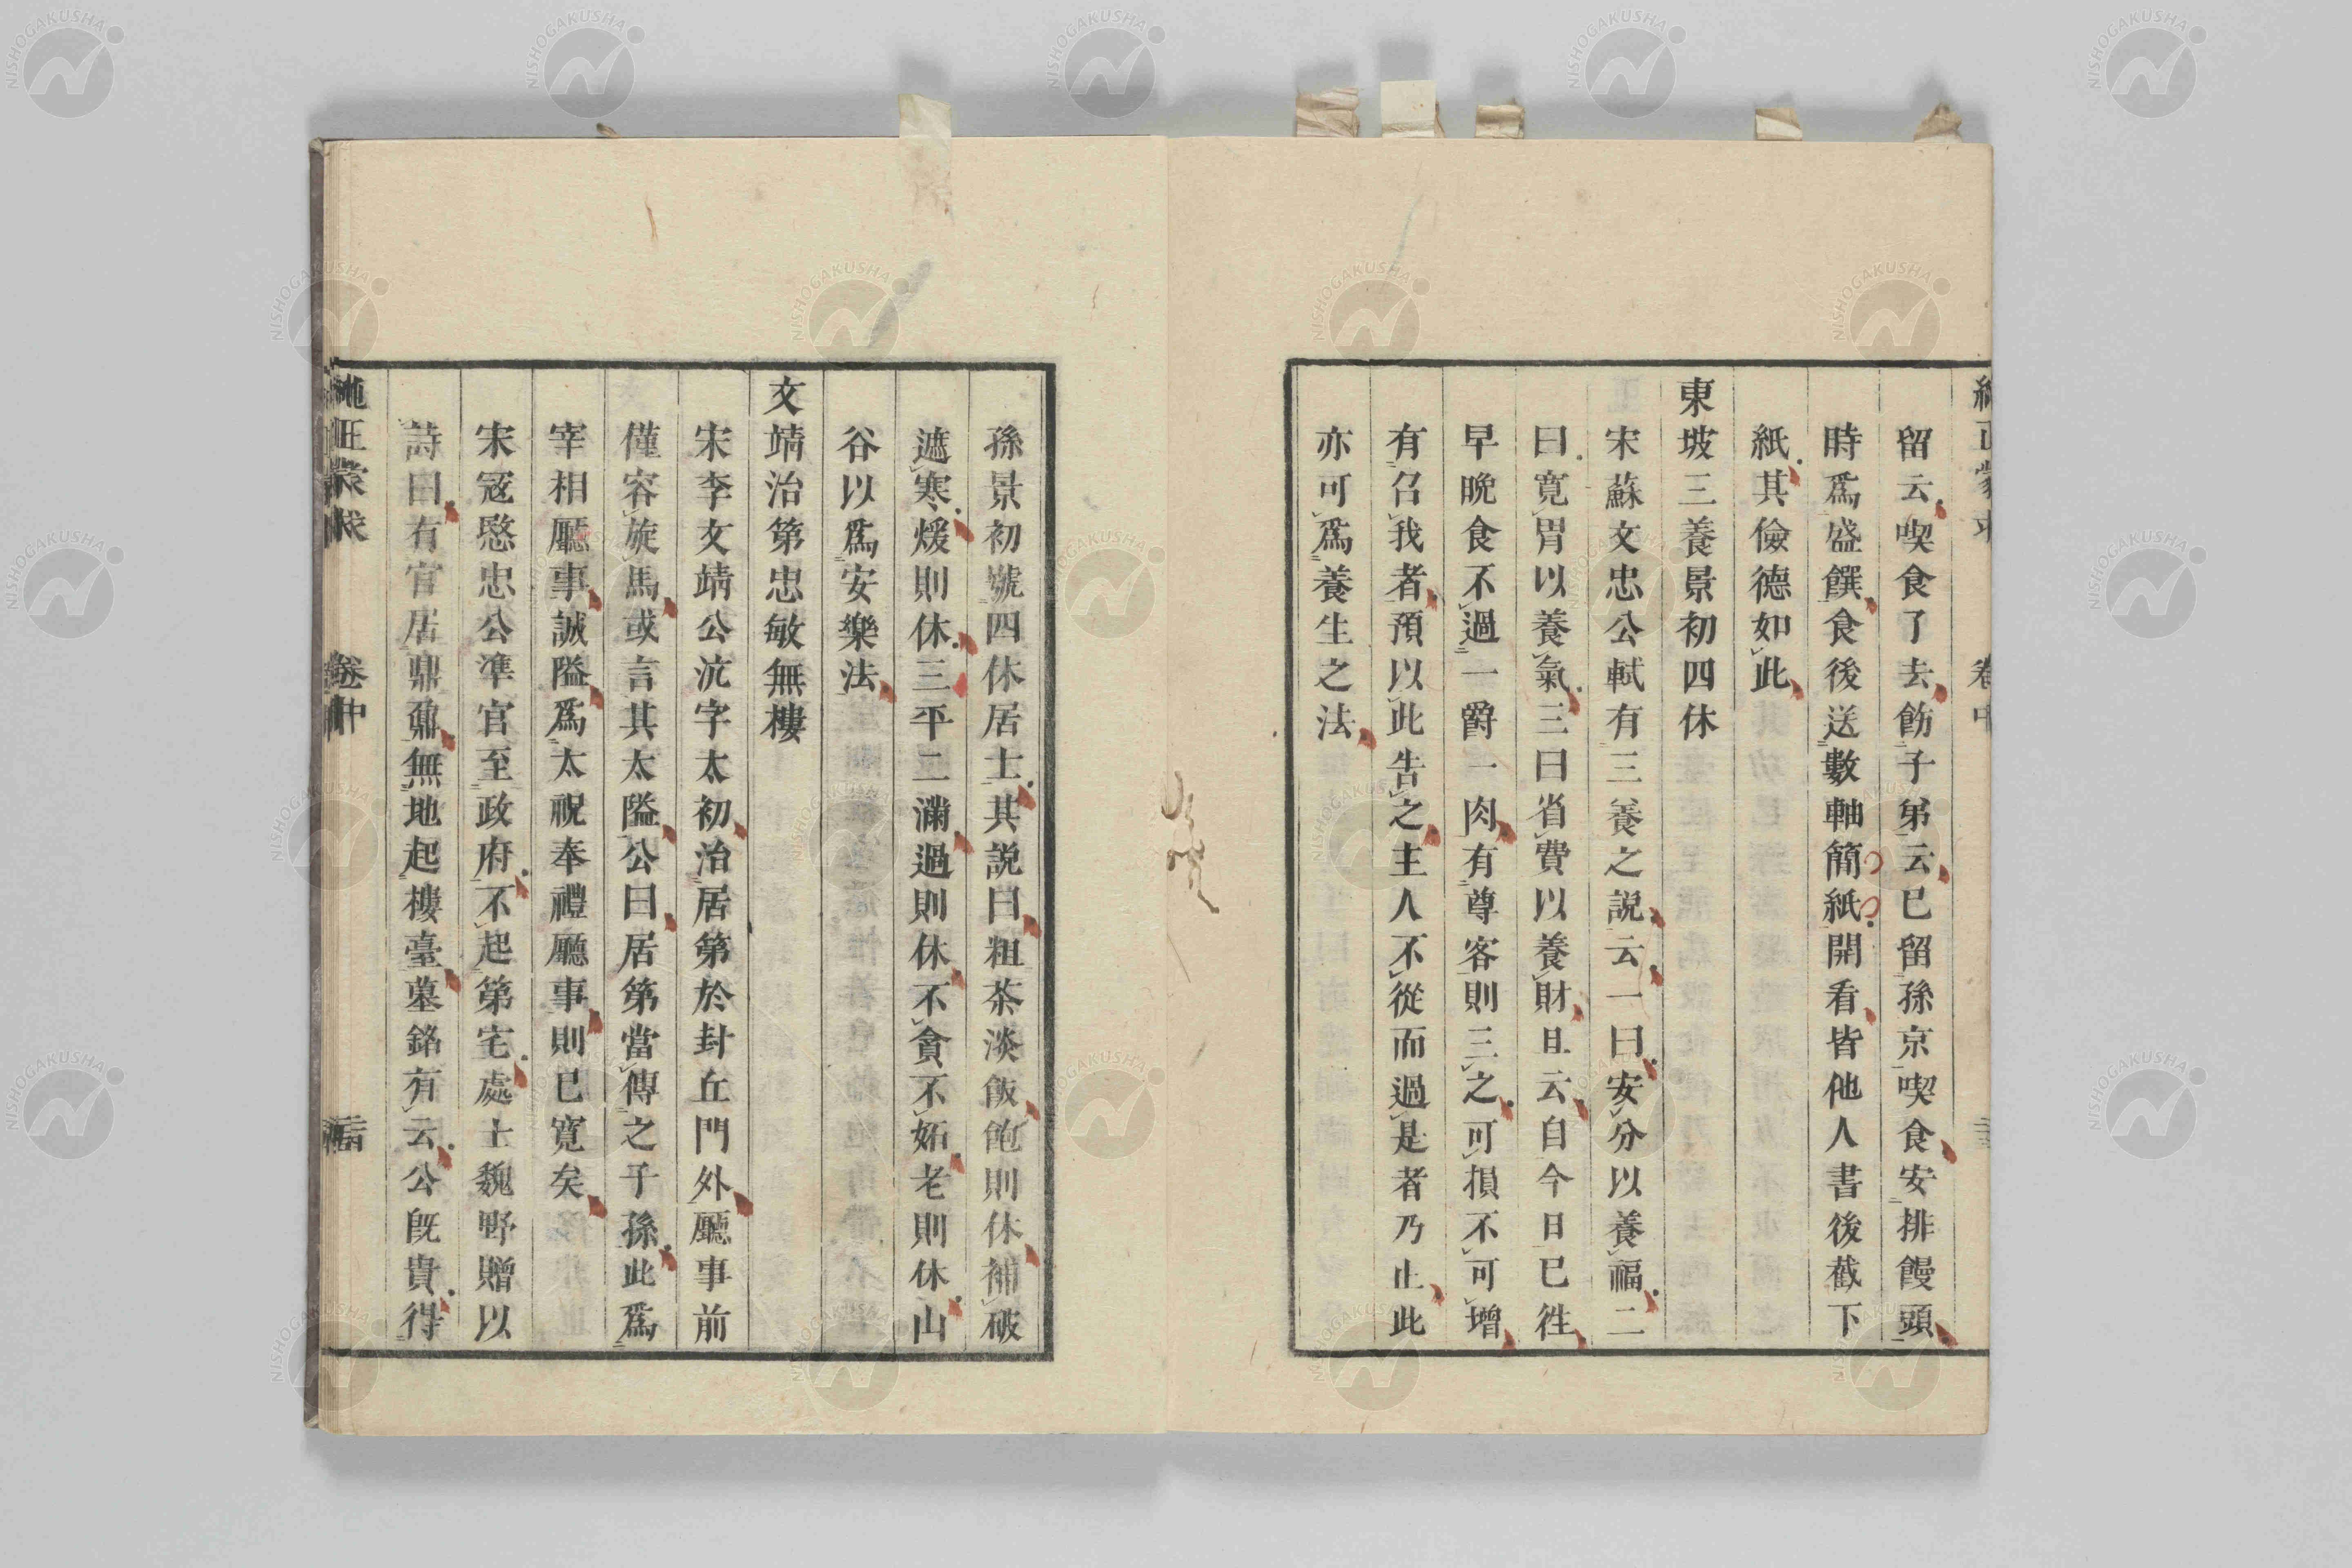 留云喫食了去飭子弟云已留孫京喫食安排饅頭
時爲盛饌食後送數軸簡紙開看皆他人書後截下
紙其儉德如此
東坡三養景初四休
宋蘇文忠公軾有三養之說云一曰安分以養福二
曰寛胃以養氣三曰省費以養財且云自今日已徃
早晩食不過一爵一肉有尊客則三之可損不可増
有召我者預以此告之主人不從而過是者乃止此
亦可爲養生之法
孫景初號四休居士其説曰粗茶淡飯飽則休補破
遮寒煖則休三平二滿過則休不貪不妬老則休山
谷以爲安樂法
文靖治第忠敏無樓
宋李文靖公沆字太初治居第於封丘門外廳事前
僅容旋馬或言其太隘公曰居第當傳之子孫此爲
宰相廳事誠隘爲太祝奉禮廳事則已寛矣
宋冦愍忠公凖官至政府不起第宅處士魏野贈以
詩曰有官居鼎鼐無地起樓臺墓銘有云公旣貴得
卷中
NISHOGAKUSHA